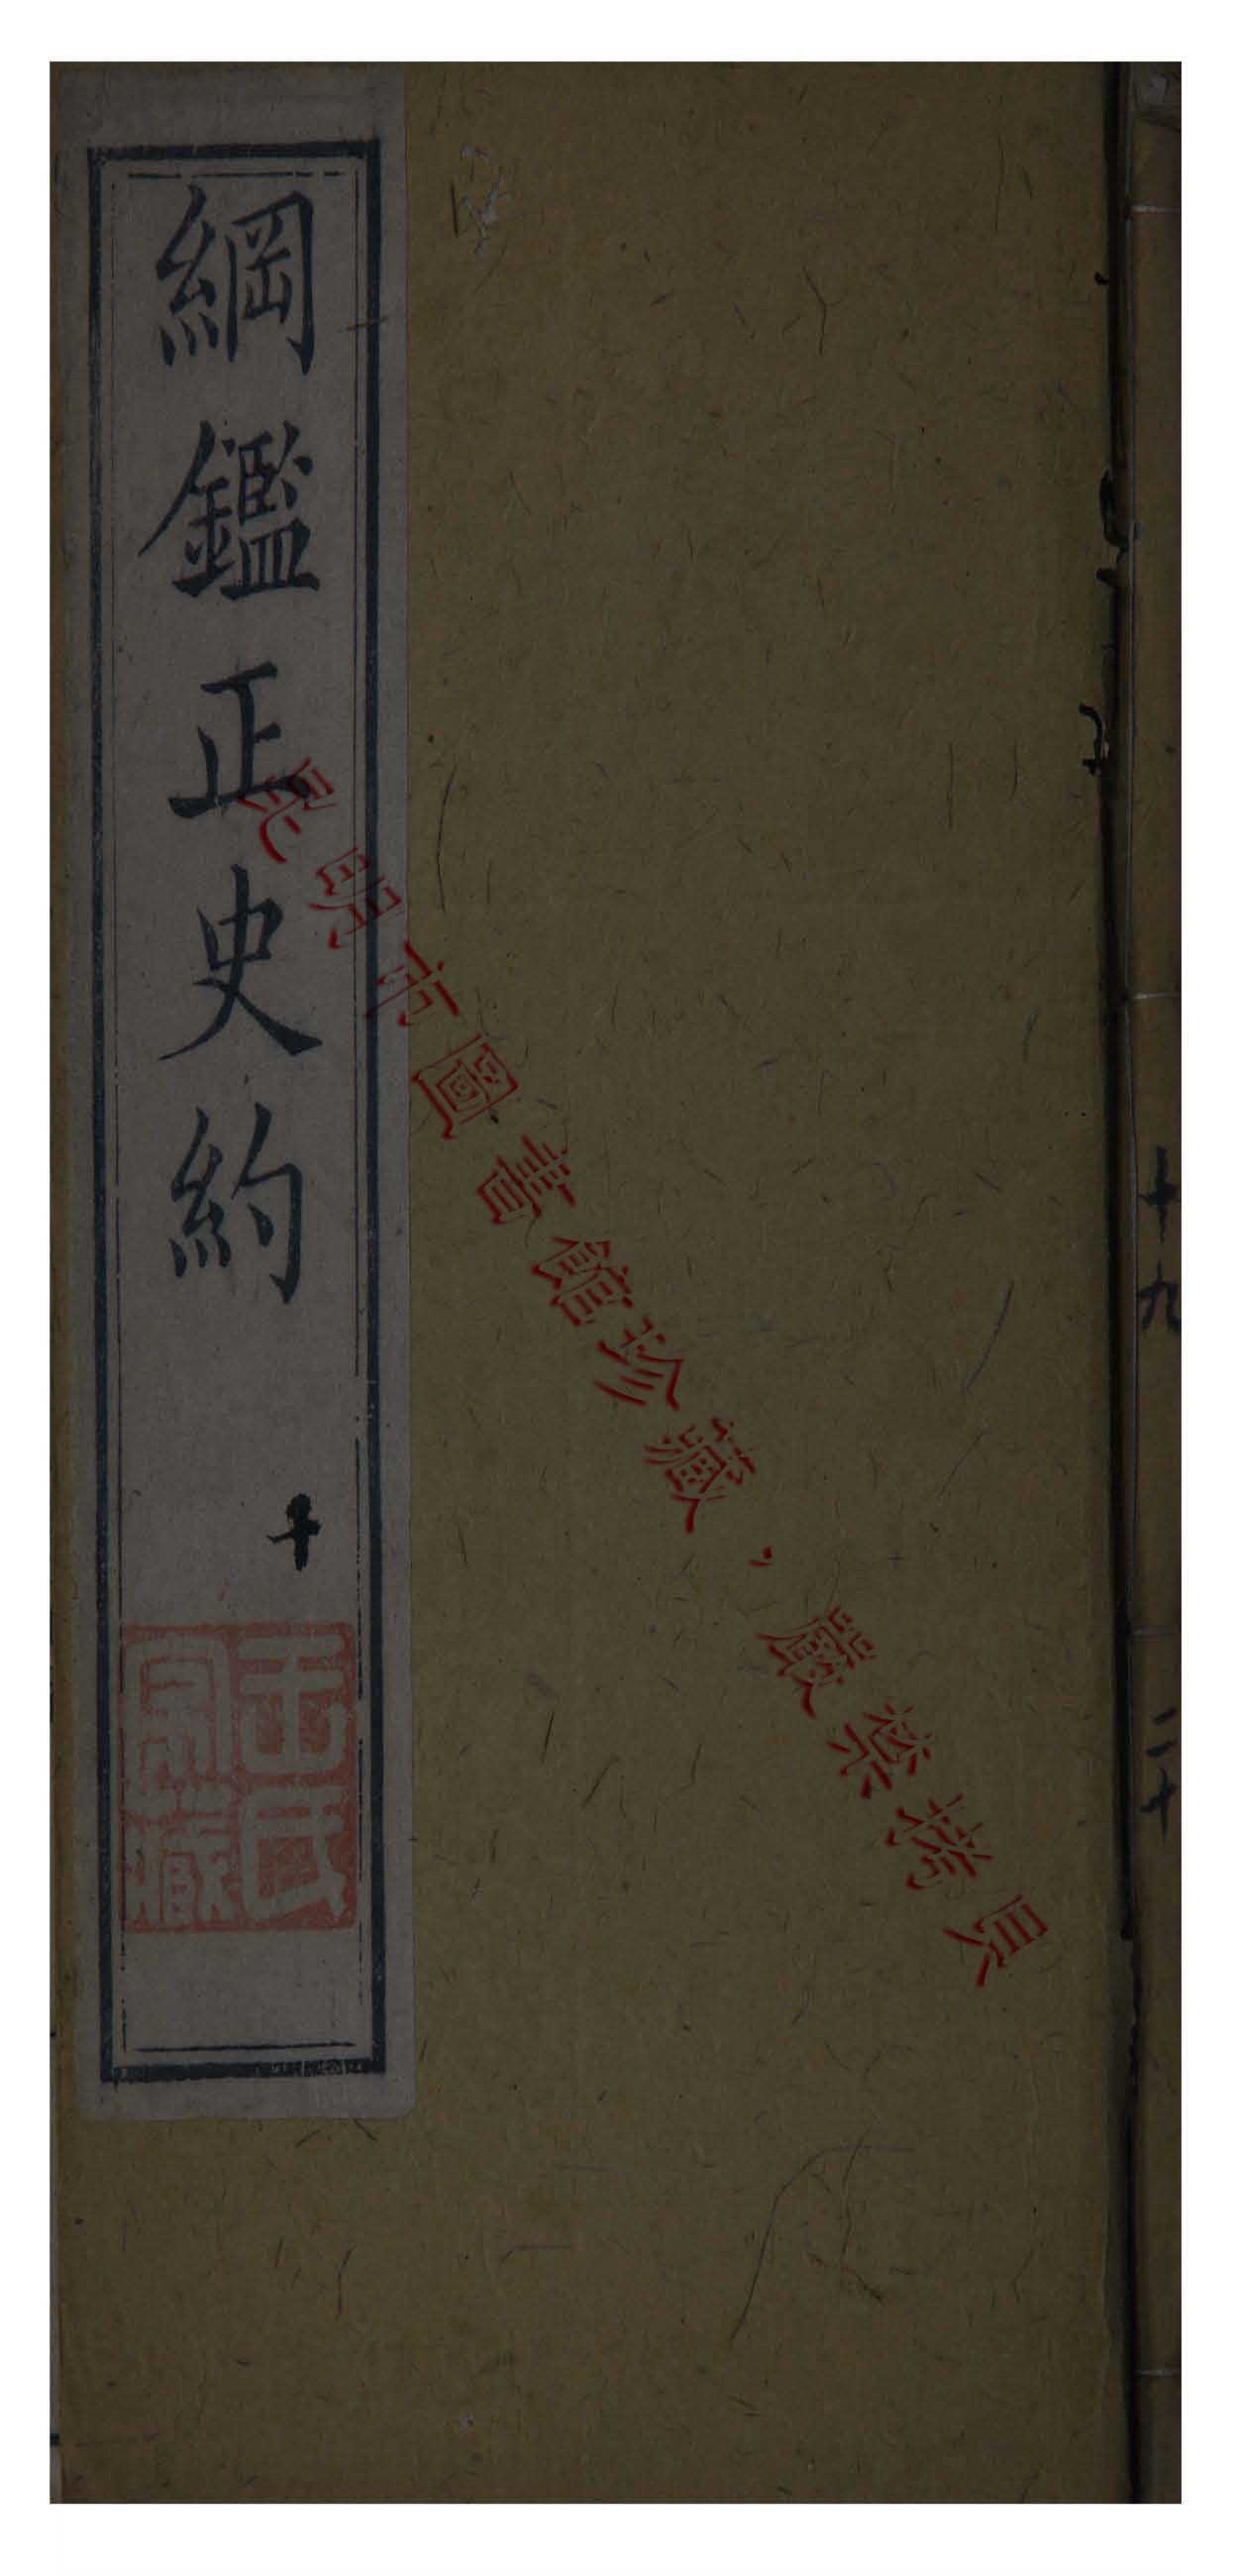 綱鑑正史約
十
王氏
家藏
十九
二十
昆明市圖書館珍藏，嚴禁拷貝